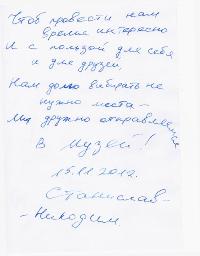 Чтоб провести нам
время интересно
И с пользой для себя
и для друзей,
Нам долго выбирать не
нужно места -
Мы дружно отправляемся
В музей!
15.11.2012.
Станислав -
- Никодим.